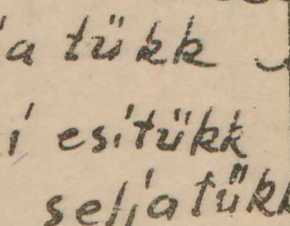 a tükk
i esitükk
seljatükk